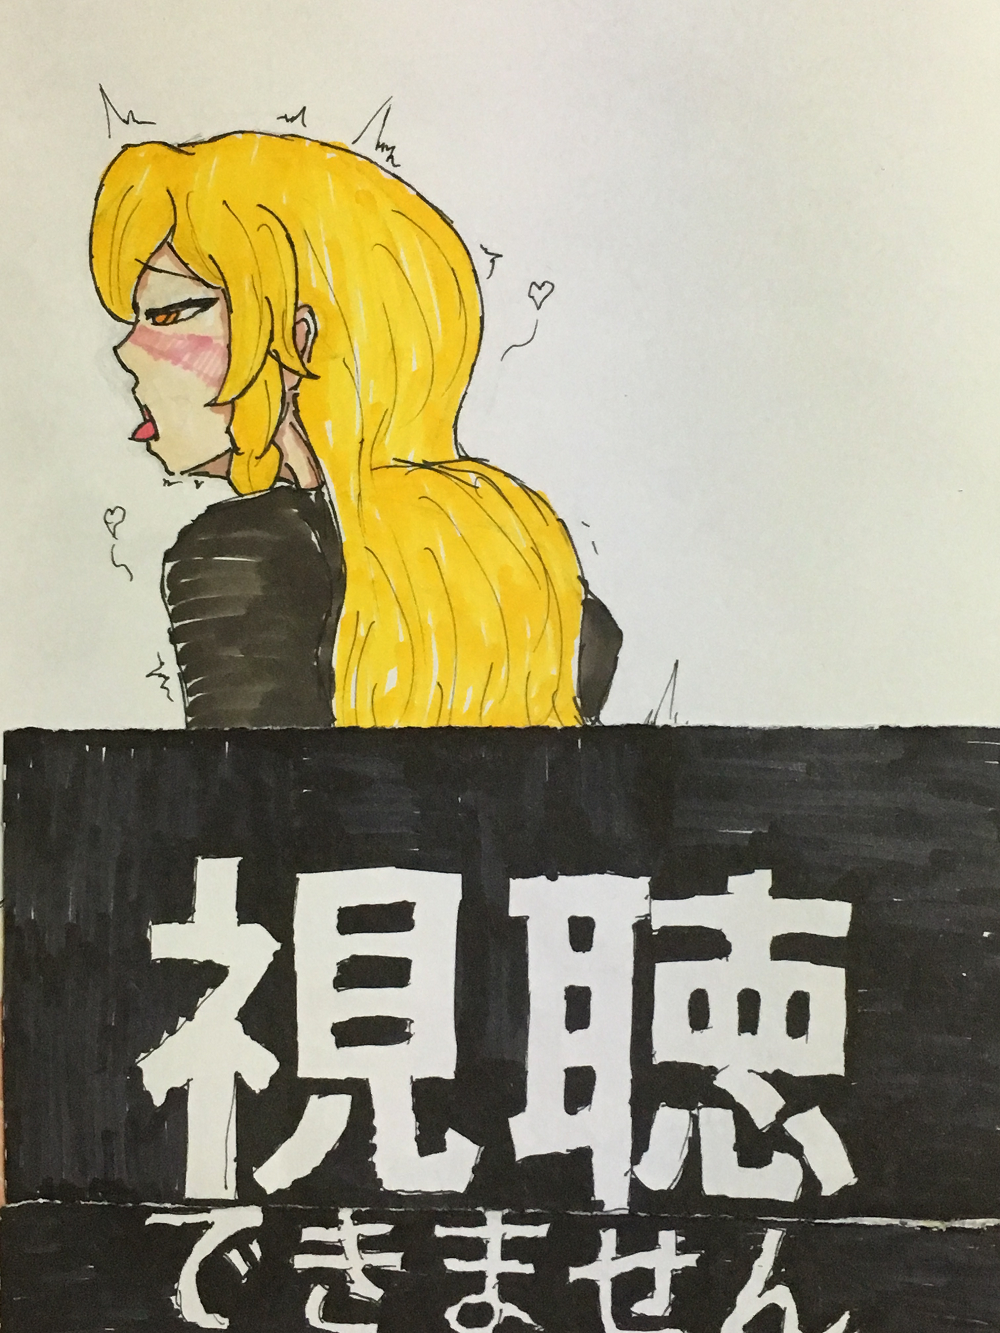 視聴
できません